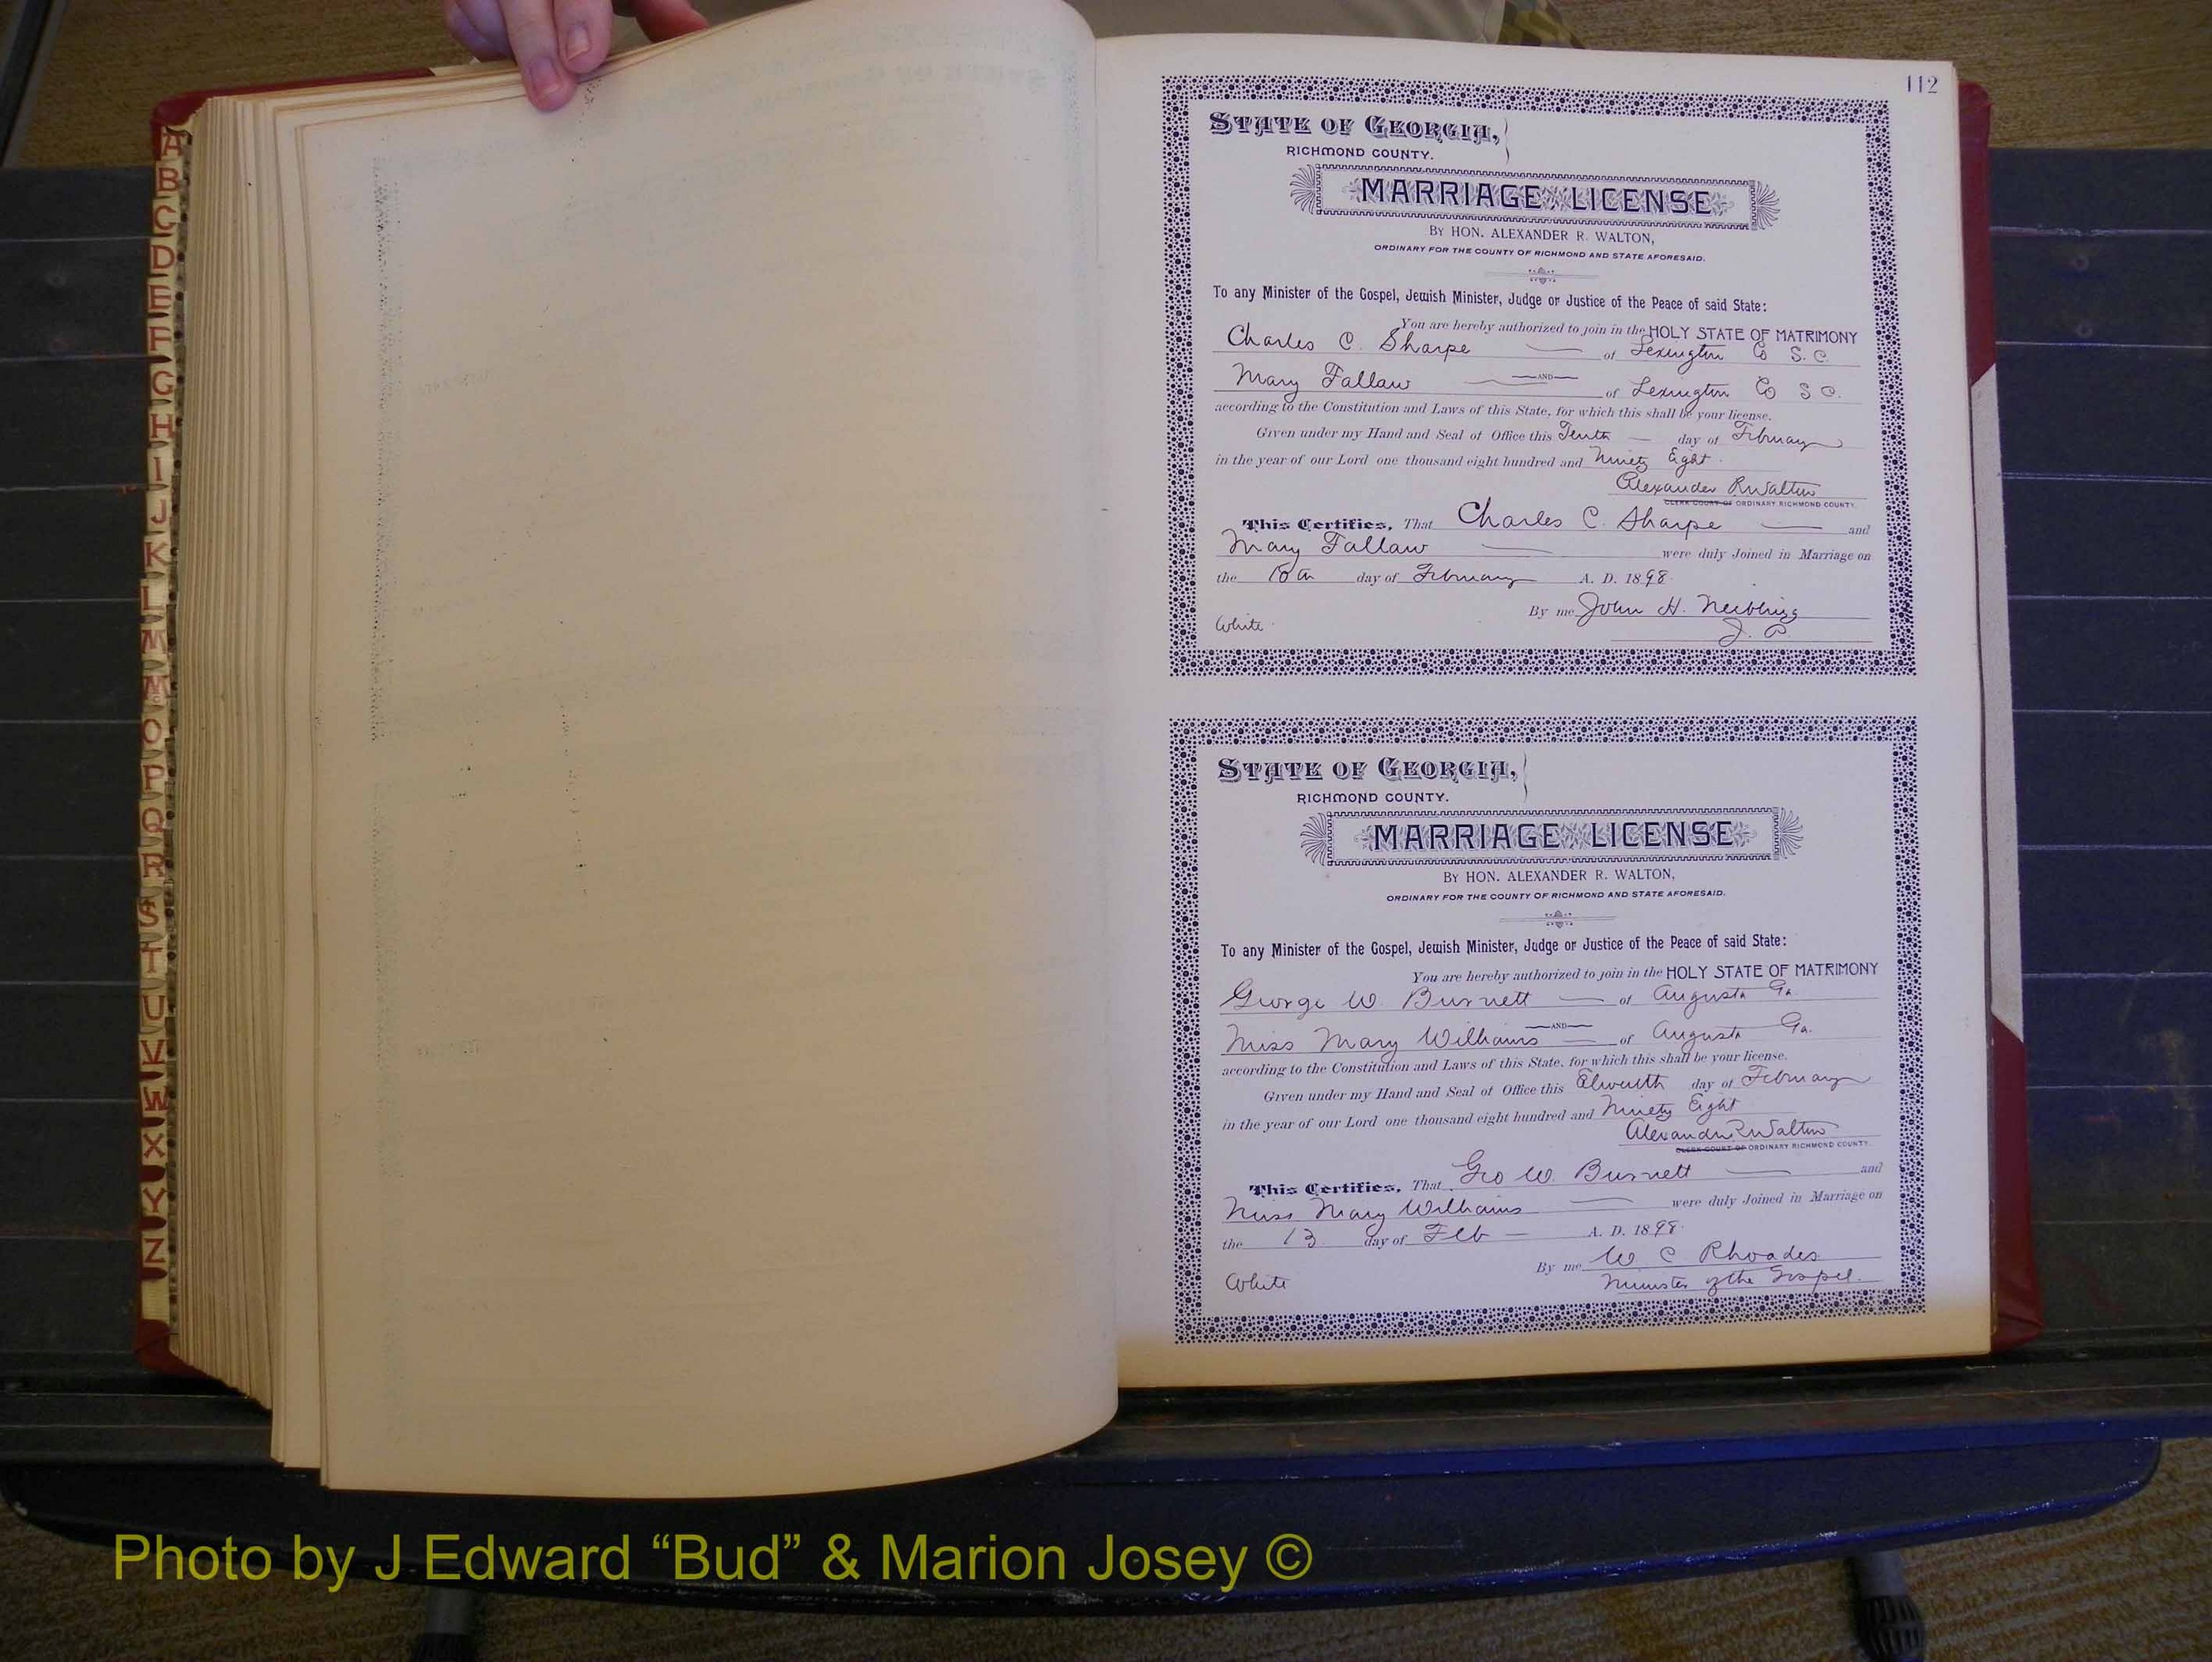 112
A
B
C
D
E
F
G
H
I
J
K
L
M
Mc
O
P
Q
R
S
T
U
V
W
X
Y
Z
STATE OF GEORGIA,
RICHMOND COUNTY.
MARRIAGE LICENSE
BY HON. ALEXANDER R. WALTON,
ORDINARY FOR THE COUNTY OF RICHMOND AND STATE AFORESAID.
To any Minister of the Gospel, Jewish Minister, Judge or Justice of the Peace of said State:
You are hereby authorized to join in the HOLY STATE OF MATRIMONY
Charles C. Sharpe of Lexington Co S. C.
AND
Mary Fallaw of Lexington Co S C.
according to the Constitution and Laws of this State, for which this shall be your license.
Given under my Hand and Seal of Office this Tenth day of February
in the year of our Lord one thousand eight hundred and Ninety Eight.
Alexander R Walton
CLERK COURT OF ORDINARY RICHMOND COUNTY.
This Certifies, That Charles C. Sharpe and
Mary Fallaw were duly Joined in Marriage on
the day of February A. D. 1898.
By me John H.
White J. P.
STATE OF GEORGIA,
RICHMOND COUNTY.
MARRIAGE LICENSE
BY HON. ALEXANDER R. WALTON,
ORDINARY FOR THE COUNTY OF RICHMOND AND STATE AFORESAID.
To any Minister of the Gospel, Jewish Minister, Judge or Justice of the Peace of said State:
You are hereby authorized to join in the HOLY STATE OF MATRIMONY
George W. Burnett of Augusta Ga.
AND
Miss Mary Williams of Augusta Ga.
according to the Constitution and Laws of this State, for which this shall be your license.
Given under my Hand and Seal of Office this Eleventh day of February
in the year of our Lord one thousand eight hundred and Ninety Eight
Alexander R Walton
CLERK COURT OF ORDINARY RICHMOND COUNTY.
This Certifies, That Geo W. Burnett and
Miss Mary Williams were duly Joined in Marriage on
the 13 day of Feb A. D. 1898.
By me W C Rhoades
White Minister of the Gospel.
Photo by J Edward “Bud” & Marion Josey ©